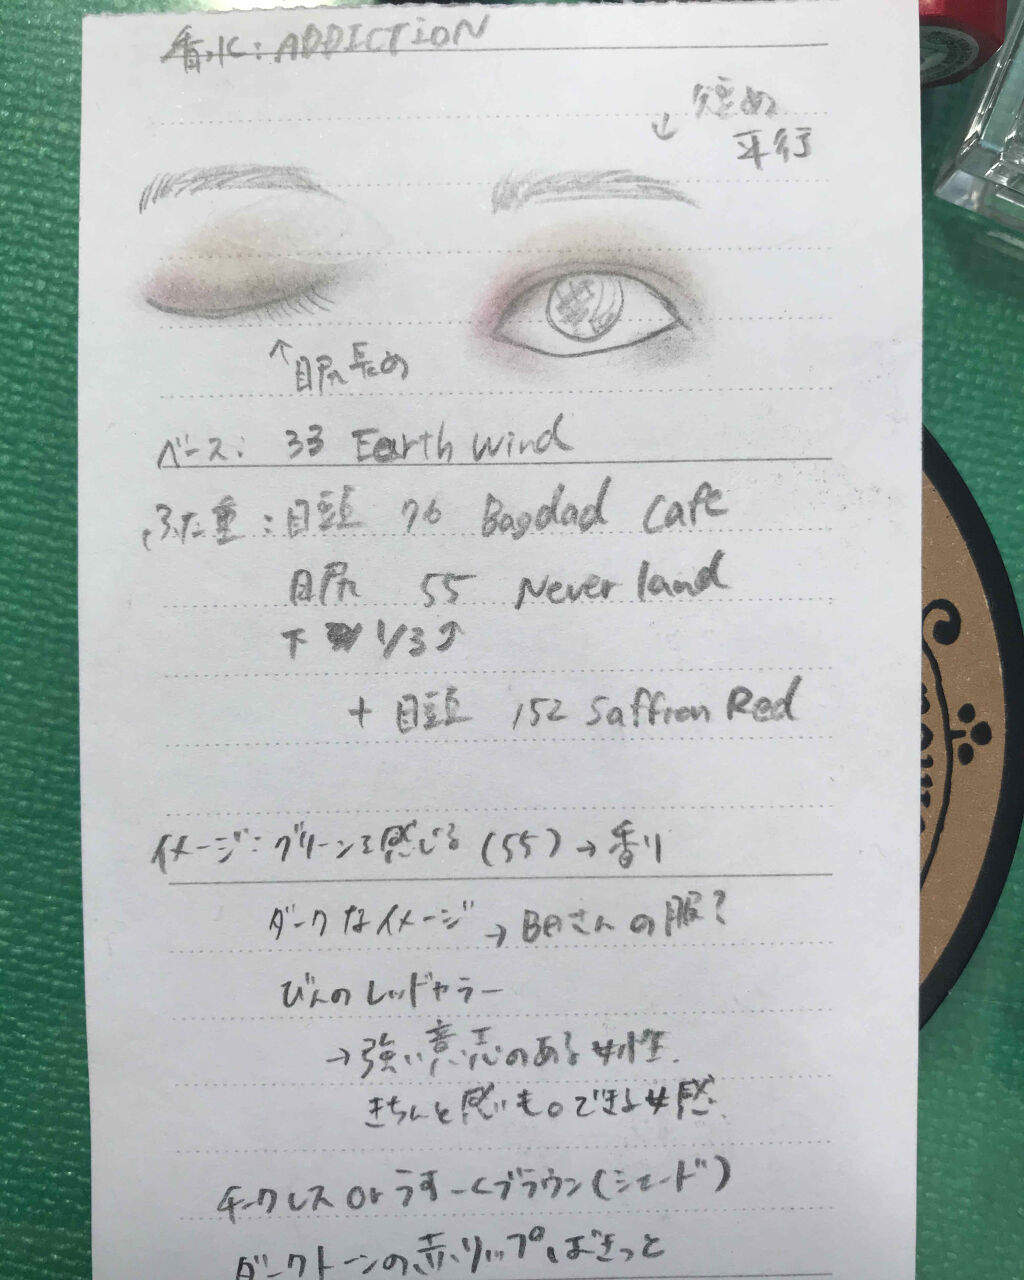 香水: ADDICTION
↓ 短め
平行
↑目尻長め
ベース: 33 Earth Wind
ふた重: 目頭 76 Bagdad Cafe
目尻 55 Never land
下 1/3
+ 目頭 152 Saffron Red
イメージ: グリーンを感じる (55) → 香り
ダークなイメージ → BAさんの服?
びんのレッドカラー
→ 強い意志のある女性.
きちんと
チークレス or うすーくブラウン (シェード)
ダークトーンの赤リップ